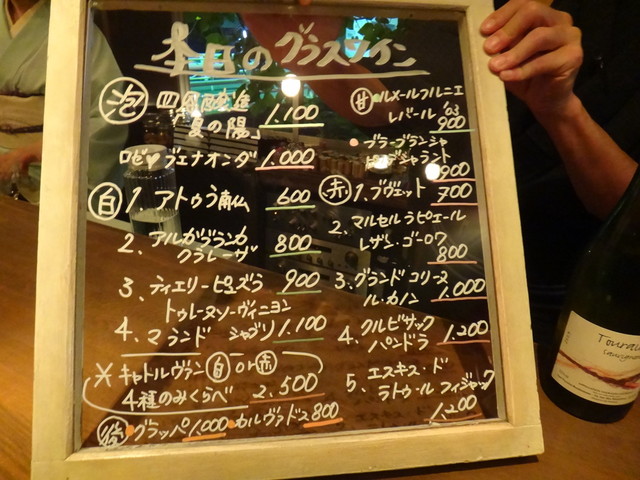 本日のグラスワイン
泡
「夏の陽」 1,100
ロゼ ブエナオンダ 1,000
白 1. アトゥラ 南仏 600
2. アルガブランカ
クラレーザ 800
3. ティエリーピュズラ 900
トゥレーヌソーヴィニヨン
4. マランド シャブリ 1,100
※ キャトルヴァン 白 or 赤
4種のみくらべ 2,500
グラッパ 1,000 カルヴァドス 800
甘 ルメールフルニエ
レバール '03
900
ブラーゴブランジャ
900
赤 1. ブヴェット 700
2. マルセルラピエール
レザン・ゴーロワ
800
3. グランドコリーヌ
ル・カノン 1,000
4. クルビサック 1,200
パンドラ
5. エスキス・ド
ラトゥールフィジャック
1,200